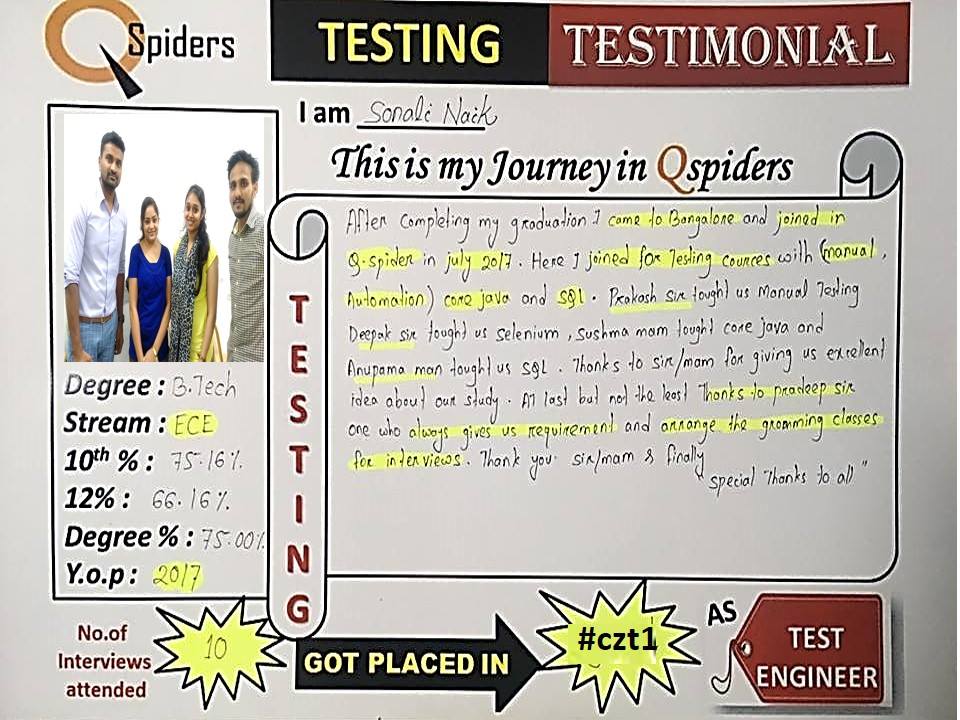 QSpiders
TESTING TESTIMONIAL
I am Sonali Naik
This is my Journey in Qspiders
After Completing my graduation I came to Bangalore and joined in
Q-spider in july 2017. Here I joined for Testing cources with (manual,
Automation) core java and SQL. Prakash sir tought us Manual Testing
Deepak sir tought us selenium, sushma mam tought core java and
Anupama man tought us SQL. Thanks to sir/mam for giving us excellent
idea about our study. At last but not the least Thanks to pradeep sir
one who always gives us requirement and arrange the gromming classes
for interviews. Thank you sir/mam & finally
"special Thanks to all"
TESTING
Degree : B.Tech
Stream : ECE
10th % : 75.16%
12% : 66.16%
Degree % : 75.00%
Y.o.p : 2017
No.of
Interviews
attended
10
GOT PLACED IN
#czt1
AS
TEST
ENGINEER